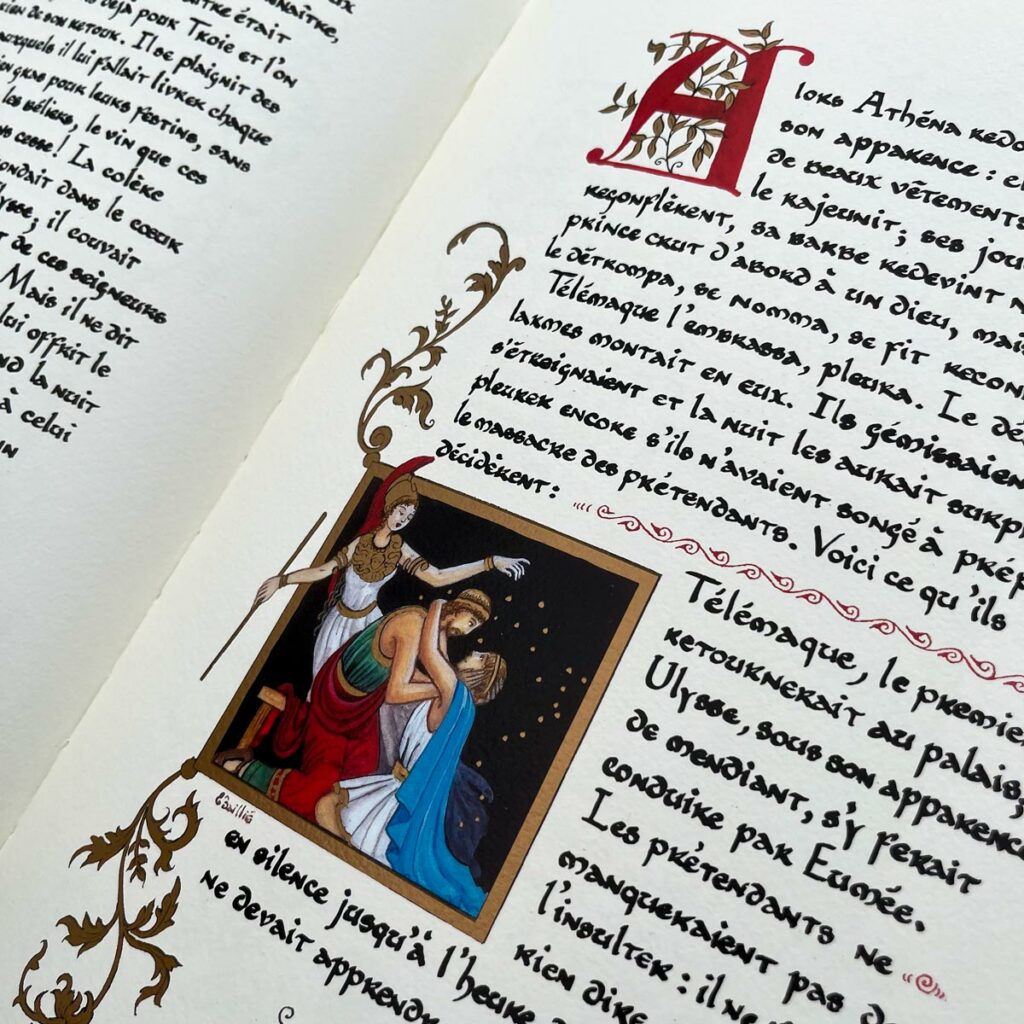 naître,
était
déjà pour Troie et l'on
rien de son retour. Il se plaignit des
auxquels il lui fallait livrer chaque
gras pour leurs festins, sans
les béliers, le vin que ces
cesse! La colère
dans le cœur
il couvait
de ces seigneurs
Mais il ne dit
lui offrit le
la nuit
à celui
Alors Athéna redo
son apparence : el
de beaux vêtements
le rajeunit; ses jou
regonflèrent, sa barbe redevint n
prince crut d'abord à un dieu, mais
le détrompa, se nomma, se fit recon
Télémaque l'embrassa, pleura. Le dé
larmes montait en eux. Ils gémissaien
s'étreignaient et la nuit les aurait surp
pleurer encore s'ils n'avaient songé à prép
le massacre des prétendants. Voici ce qu'ils
décidèrent :
Télémaque, le premie
retournerait au palais;
Ulysse, sous son apparence
de mendiant, s'y ferait
conduire par Eumée.
Les prétendants ne
manqueraient pas d
l'insulter : il ne
rien dire
en silence jusqu'à l'heure
ne devait apprend